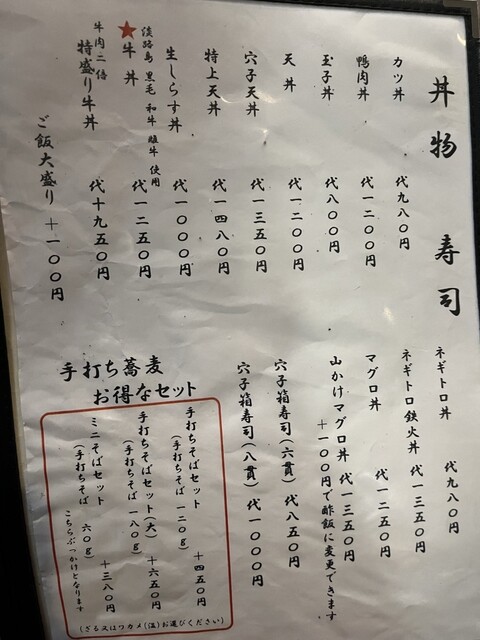 丼物 寿司
カツ丼 代九八〇円
鴨肉丼 代一二〇〇円
玉子丼 代八〇〇円
天丼 代一二〇〇円
穴子天丼 代一三五〇円
特上天丼 代一四八〇円
生しらす丼 代一〇〇〇円
淡路島 黒毛 和牛 雌牛 使用
★牛丼 代一二五〇円
牛肉二倍
特盛り牛丼 代十九五〇円
ご飯大盛り 十一〇〇円
ネギトロ丼 代九八〇円
ネギトロ鉄火丼 代一三五〇円
マグロ丼 代一二五〇円
山かけマグロ丼 代一三五〇円
十一〇〇円で酢飯に変更できます
穴子箱寿司(六貫) 代八五〇円
穴子箱寿司(八貫) 代一〇〇〇円
手打ち蕎麦
お得なセット
手打ちそばセット
(手打ちそば 一二〇g) 十四五〇円
手打ちそばセット(大)
(手打ちそば 一八〇g) 十六五〇円
ミニそばセット
(手打ちそば 六〇g) 十三八〇円
こちらぶっかけとなります
(ざる又はワカメ(温)お選びください)